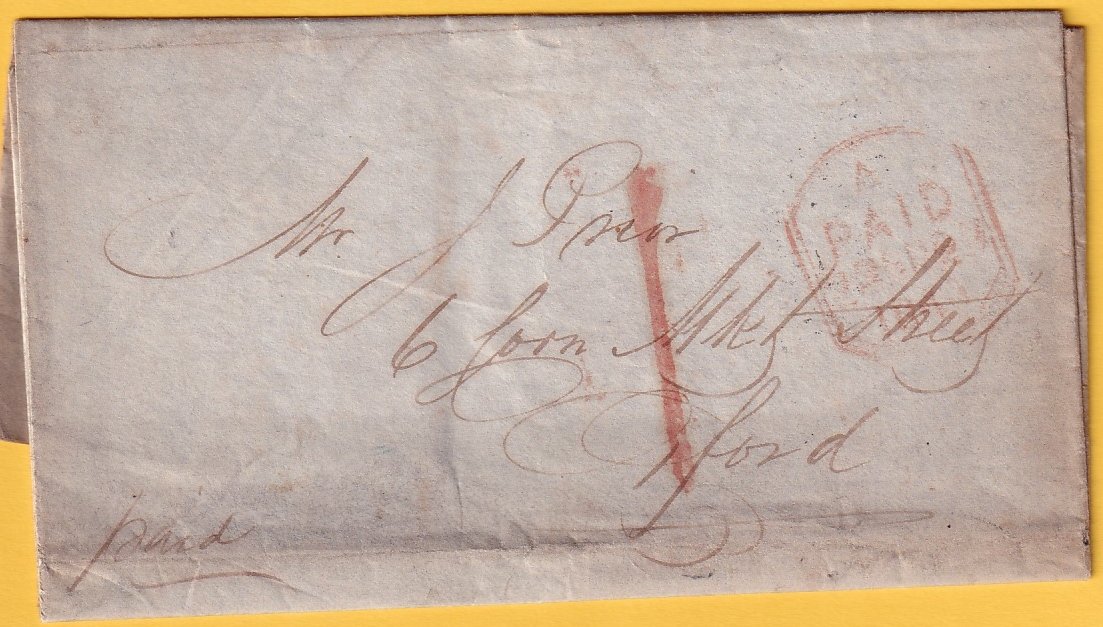 Mr J Prior
6 Corn Mkt Street
Oxford
paid
1
A
PAID